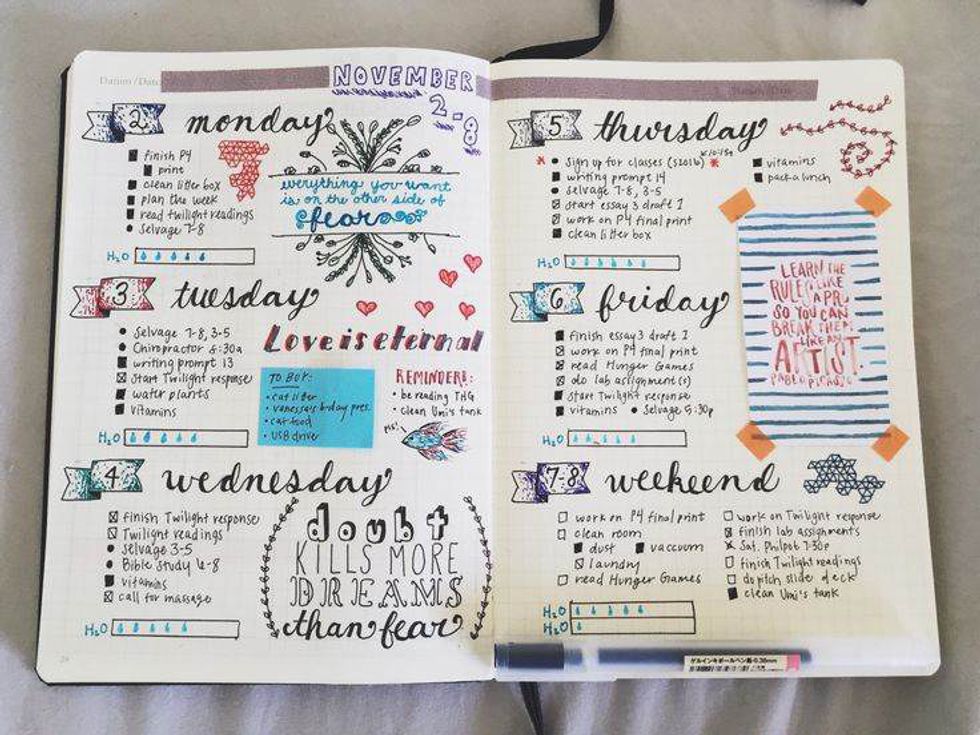 Datum / Date
NOVEMBER
2-8
2 monday
finish P4
print
clean litter box
plan the week
read twilight readings
Selvage 7-8
H2O
everything you want
is on the other side of
fear
3 tuesday
Selvage 7-8, 3-5
Chiropractor 8:30a
writing prompt 13
Start Twilight response
water plants
vitamins
H2O
Love is eternal
TO BUY:
• cat litter
• vanessa's b-day pres.
• cat food
• USB drive
REMINDERS:
• be reading THG
• clean Umi's tank
4 wednesday
finish Twilight response
Twilight readings
Selvage 3-5
Bible Study 6-8
vitamins
call for massage
H2O
doubt
KILLS MORE
DREAMS
than fear
5 thursday
Sign up for classes (S2016)
writing prompt 14
Selvage 7-8, 3-5
start essay 3 draft 1
work on P4 final print
clean litter box
vitamins
pack a lunch
H2O
6 friday
finish essay 3 draft 1
work on P4 final print
read Hunger Games
do lab assignment(s)
start Twilight response
vitamins • Selvage 5:30p
H2O
LEARN THE
RULES LIKE
A PRO
SO YOU CAN
BREAK THEM
LIKE AN
ARTIST.
PABLO PICASSO
7-8 weekend
work on P4 final print
clean room
dust
vaccuum
laundry
read Hunger Games
work on Twilight response
finish lab assignments
Sat. Philpot 7:30p
finish Twilight readings
do pitch slide deck
clean Umi's tank
H2O
H2O
ゲルインキボールペン 0.38mm